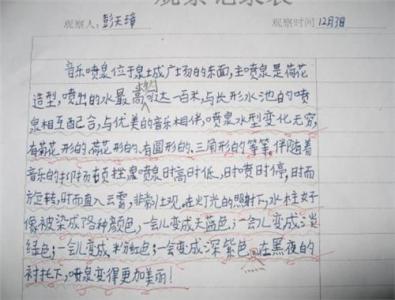 观察记录表
观察人：彭天璋 观察时间 12月3日
音乐喷泉位于泉城广场的东面，主喷泉是荷花
造型，喷出的水最高可达一百米，与长形水池的喷
泉相互配合，与优美的音乐相伴，喷泉水型变化无穷，
有菊花形的、荷花形的、有圆形的、三角形的等等。伴随着
音乐的抑扬顿挫，喷泉时高时低、时喷时停，时而
方旋转，时而直入云霄，非常壮观。在灯光的照射下，水柱好
像被染成了各种颜色，一会儿变成天蓝色；一会儿变成淡
绿色；一会儿变成粉红色；一会变成深紫色。在黑夜的
衬托下，喷泉变得更加美丽！